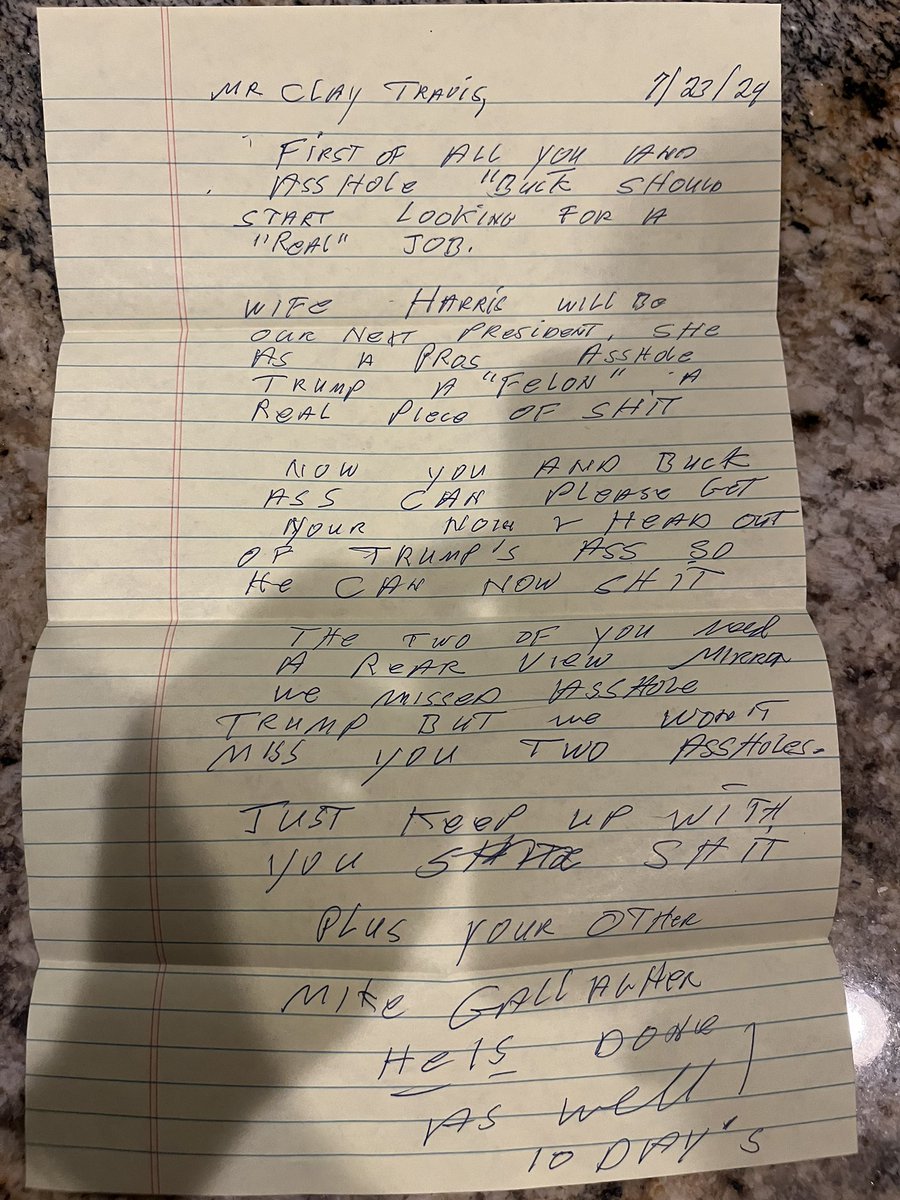 MR CLAY TRAVIS, 7/23/24
FIRST OF ALL YOU AND
ASSHOLE "BUCK SHOULD
START LOOKING FOR A
"REAL" JOB.
WIFE HARRIS WILL BE
OUR NEXT PRESIDENT, SHE
AS A PROS, ASSHOLE
TRUMP A "FELON" A
REAL PIECE OF SHIT
NOW YOU AND BUCK
ASS CAN PLEASE GET
YOUR & HEAD OUT
OF TRUMP'S ASS SO
HE CAN NOW SHIT
THE TWO OF YOU NEED
A REAR VIEW MIRROR
WE MISSED ASSHOLE
TRUMP BUT WE WON'T
MISS YOU TWO ASSHOLES.
JUST KEEP UP WITH
YOU SHIT
PLUS YOUR OTHER
MIKE GALLAGHER
HE IS DONE
AS WELL
10 DAY'S